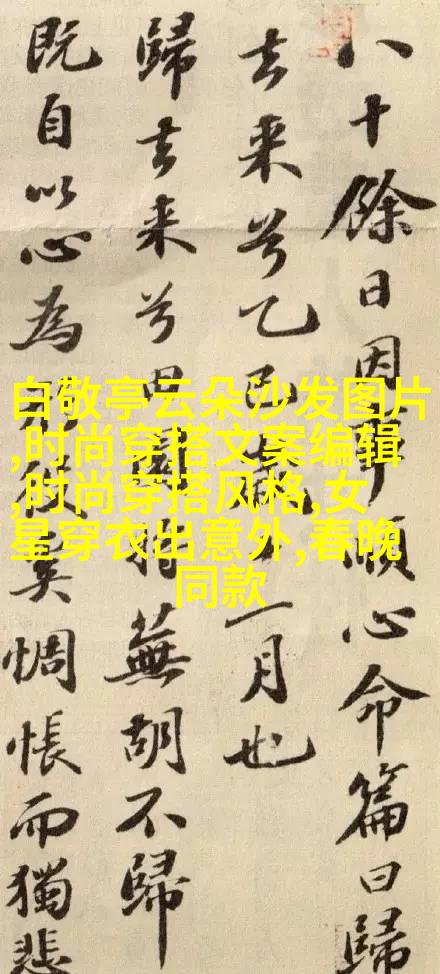 八十餘日因事順心命篇曰歸
去来兮乙巳歲一月也
歸去来兮田園將蕪胡不歸
既自以心為形役奚惆悵而獨悲
白敬亭云朵沙发图片
,时尚穿搭文案编辑
,时尚穿搭风格,女
星穿衣出意外,春晚
同款